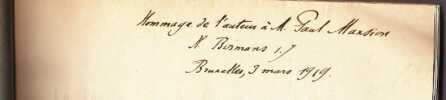 Hommage de l'auteur à M. Paul Mansion
H. Bosmans s.j
Bruxelles, 3 mars 1919.